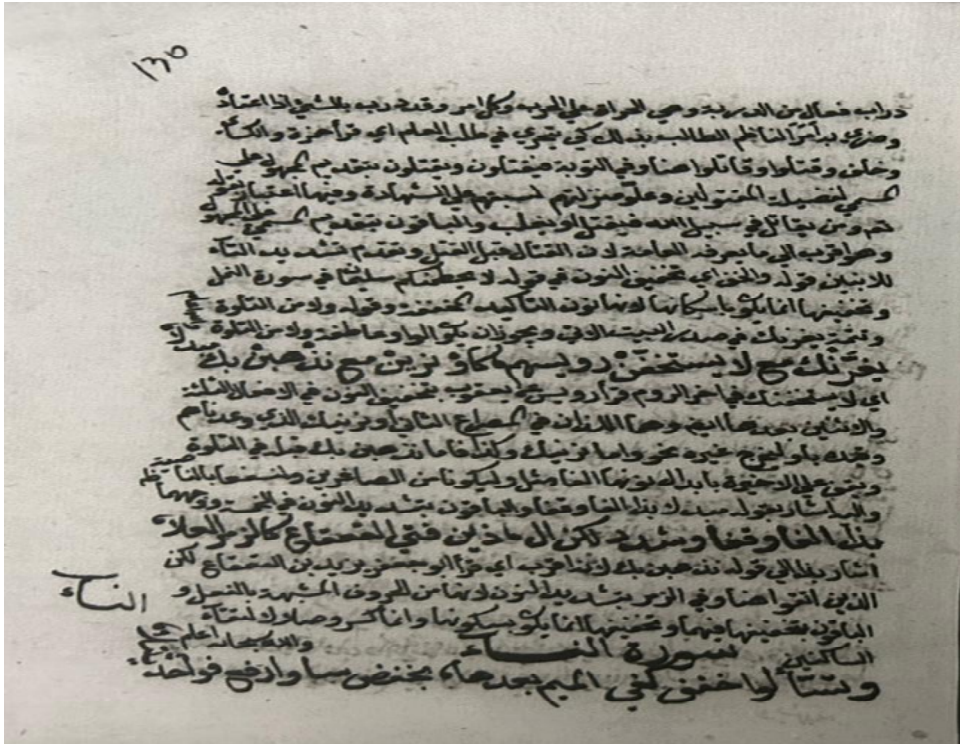 ١٣٥
دراب فعال من الدربة وهي الجراة على الحرب وكل امر وقد درب بالشيء اذا اعتاد
وضرى به امر الناظم الطالب بذلك كي يجري في طلب العلم اي قرأ حمزة والكسائي
وخلف وقتلوا وقاتلوا هنا وفي التوبة فيقتلون ويقتلون بتقديم المجهول على
المسمى لتفضيل المقتولين وعلو منزلتهم لسبقهم على الشهادة وفيها اعتبار بقوله
ومن يقاتل في سبيل الله فيقتل او يغلب والباقون بتقديم المسمى على المجهول
وهو اقرب الى ما يعرفه العامة لان القتال قبل القتل وتقدم تشديد التاء
للابنان قوله والخف اي تخفيف النون في قوله لا يحطمنكم سليمان في سورة النمل
وتخفيفها انما يكون باسكانها لانها نون التأكيد المخففة وقوله ولا من التلاوة
وتتمة يغرنك في صدر البيت الاتي ويجوز ان يكون الواو عاطفة ولا من التلاوة
يغرنك مع لا يستخفن رويسهم كما او نرين مع نذهبن بك
اي لا يستخفنك في اخر الروم قرأ رويس عن يعقوب بتخفيف النون في الافعال الثلثة
والاثنين بعدها ايم وهما اللذان في المصراع الثاني او نرينك الذي وعدناهم
وقيده باو ليخرج غيره نحو واما نرينك وكذا فاما نذهبن بك
ويقف على الخفيفة بابدال نونها الفا مثل وليكونا من الصاغرين ولنسفعا بالناصية
واليه اشار بقوله مبدلا بذا الفا وقفا والباقون بتشديد النون في الخمسة
بذا الفا وقفا وشدد لكن ال ماذين فتي القعقاع كالزمر العلاء
اشار بذا الى قوله نذهبن بك لانه اقرب اي قرأ ابو جعفر يزيد بن القعقاع لكن
الذين اتقوا هنا وفي الزمر بتشديد النون لانها من الحروف المشبهة بالفعل و
الباقون بتخفيفها فيهما وتخفيفها انما يكون بسكونها وانما كسر وصلا لالتقاء
الساكنين والله اعلم
سورة النساء
النساء
وتساءلوا خفف كفي الميم بعدها بخفض سما وارفع فواحدة